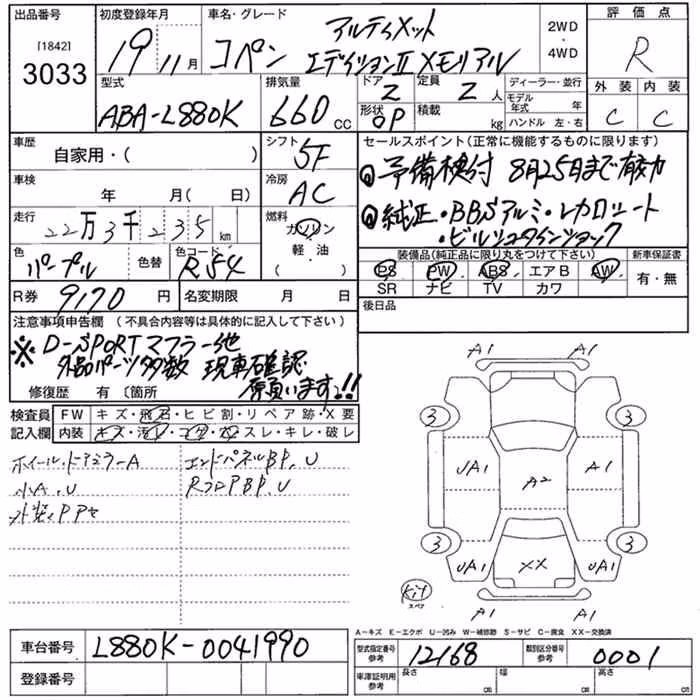 出品番号 初度登録年月 車名・グレード 評価点
[1842]
3033
19 11月 コペン アルティメット
エディションⅡメモリアル
2WD
・
4WD
R
型式 排気量 ドア 定員 ディーラー・並行 外装 内装
ABA-L880K 660cc 2 2人 モデル年式 年
形状 OP 積載 kg ハンドル 左・右 C C
車歴 自家用・( ) シフト 5F
セールスポイント(正常に機能するものに限ります)
◎予備検付 8月25日まで有効
車検 年 月( 日) 冷房 AC
◎純正・BBSアルミ・レカロシート
・ビルシュタインショック
走行 22万3千235km 燃料 ガソリン
軽・油
( )
色 パープル 色替 色コード R54
装備品(純正品に限り丸をつけて下さい) 新車保証書
PS PW ABS エアB AW 有・無
SR ナビ TV カワ
R券 9170円 名変期限 月 日
後日品
注意事項申告欄 (不具合内容等は具体的に記入して下さい)
※ D-SPORTマフラー他
外品パーツ多数 現車確認
願います!!
修復歴 有 〔箇所
検査員 FW キズ・飛石・ヒビ割・リペア跡・X要
記入欄 内装 キズ・汚レ・コゲ・穴・スレ・キレ・破レ
ホイール・ドアミラーA エンドパネルBP、U
小A、U RフロアBP、U
A1 A1
3 3
UA1 A2 A1
3 3
UA1 XX UA1
A1 A1
kit
スペア
A-キズ E-エクボ U-凹み W-補修跡 S-サビ C-腐食 XX-交換済
車台番号 L880K-0041990
登録番号
型式指定番号 参考 12168 類別区分番号 参考 0001
車庫証明用 参考 長さ cm 幅 cm 高さ cm